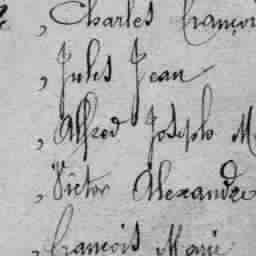 , Charles François
, Jules Jean
, Alfred Joseph M
, Victor Alexandre
, François Marie